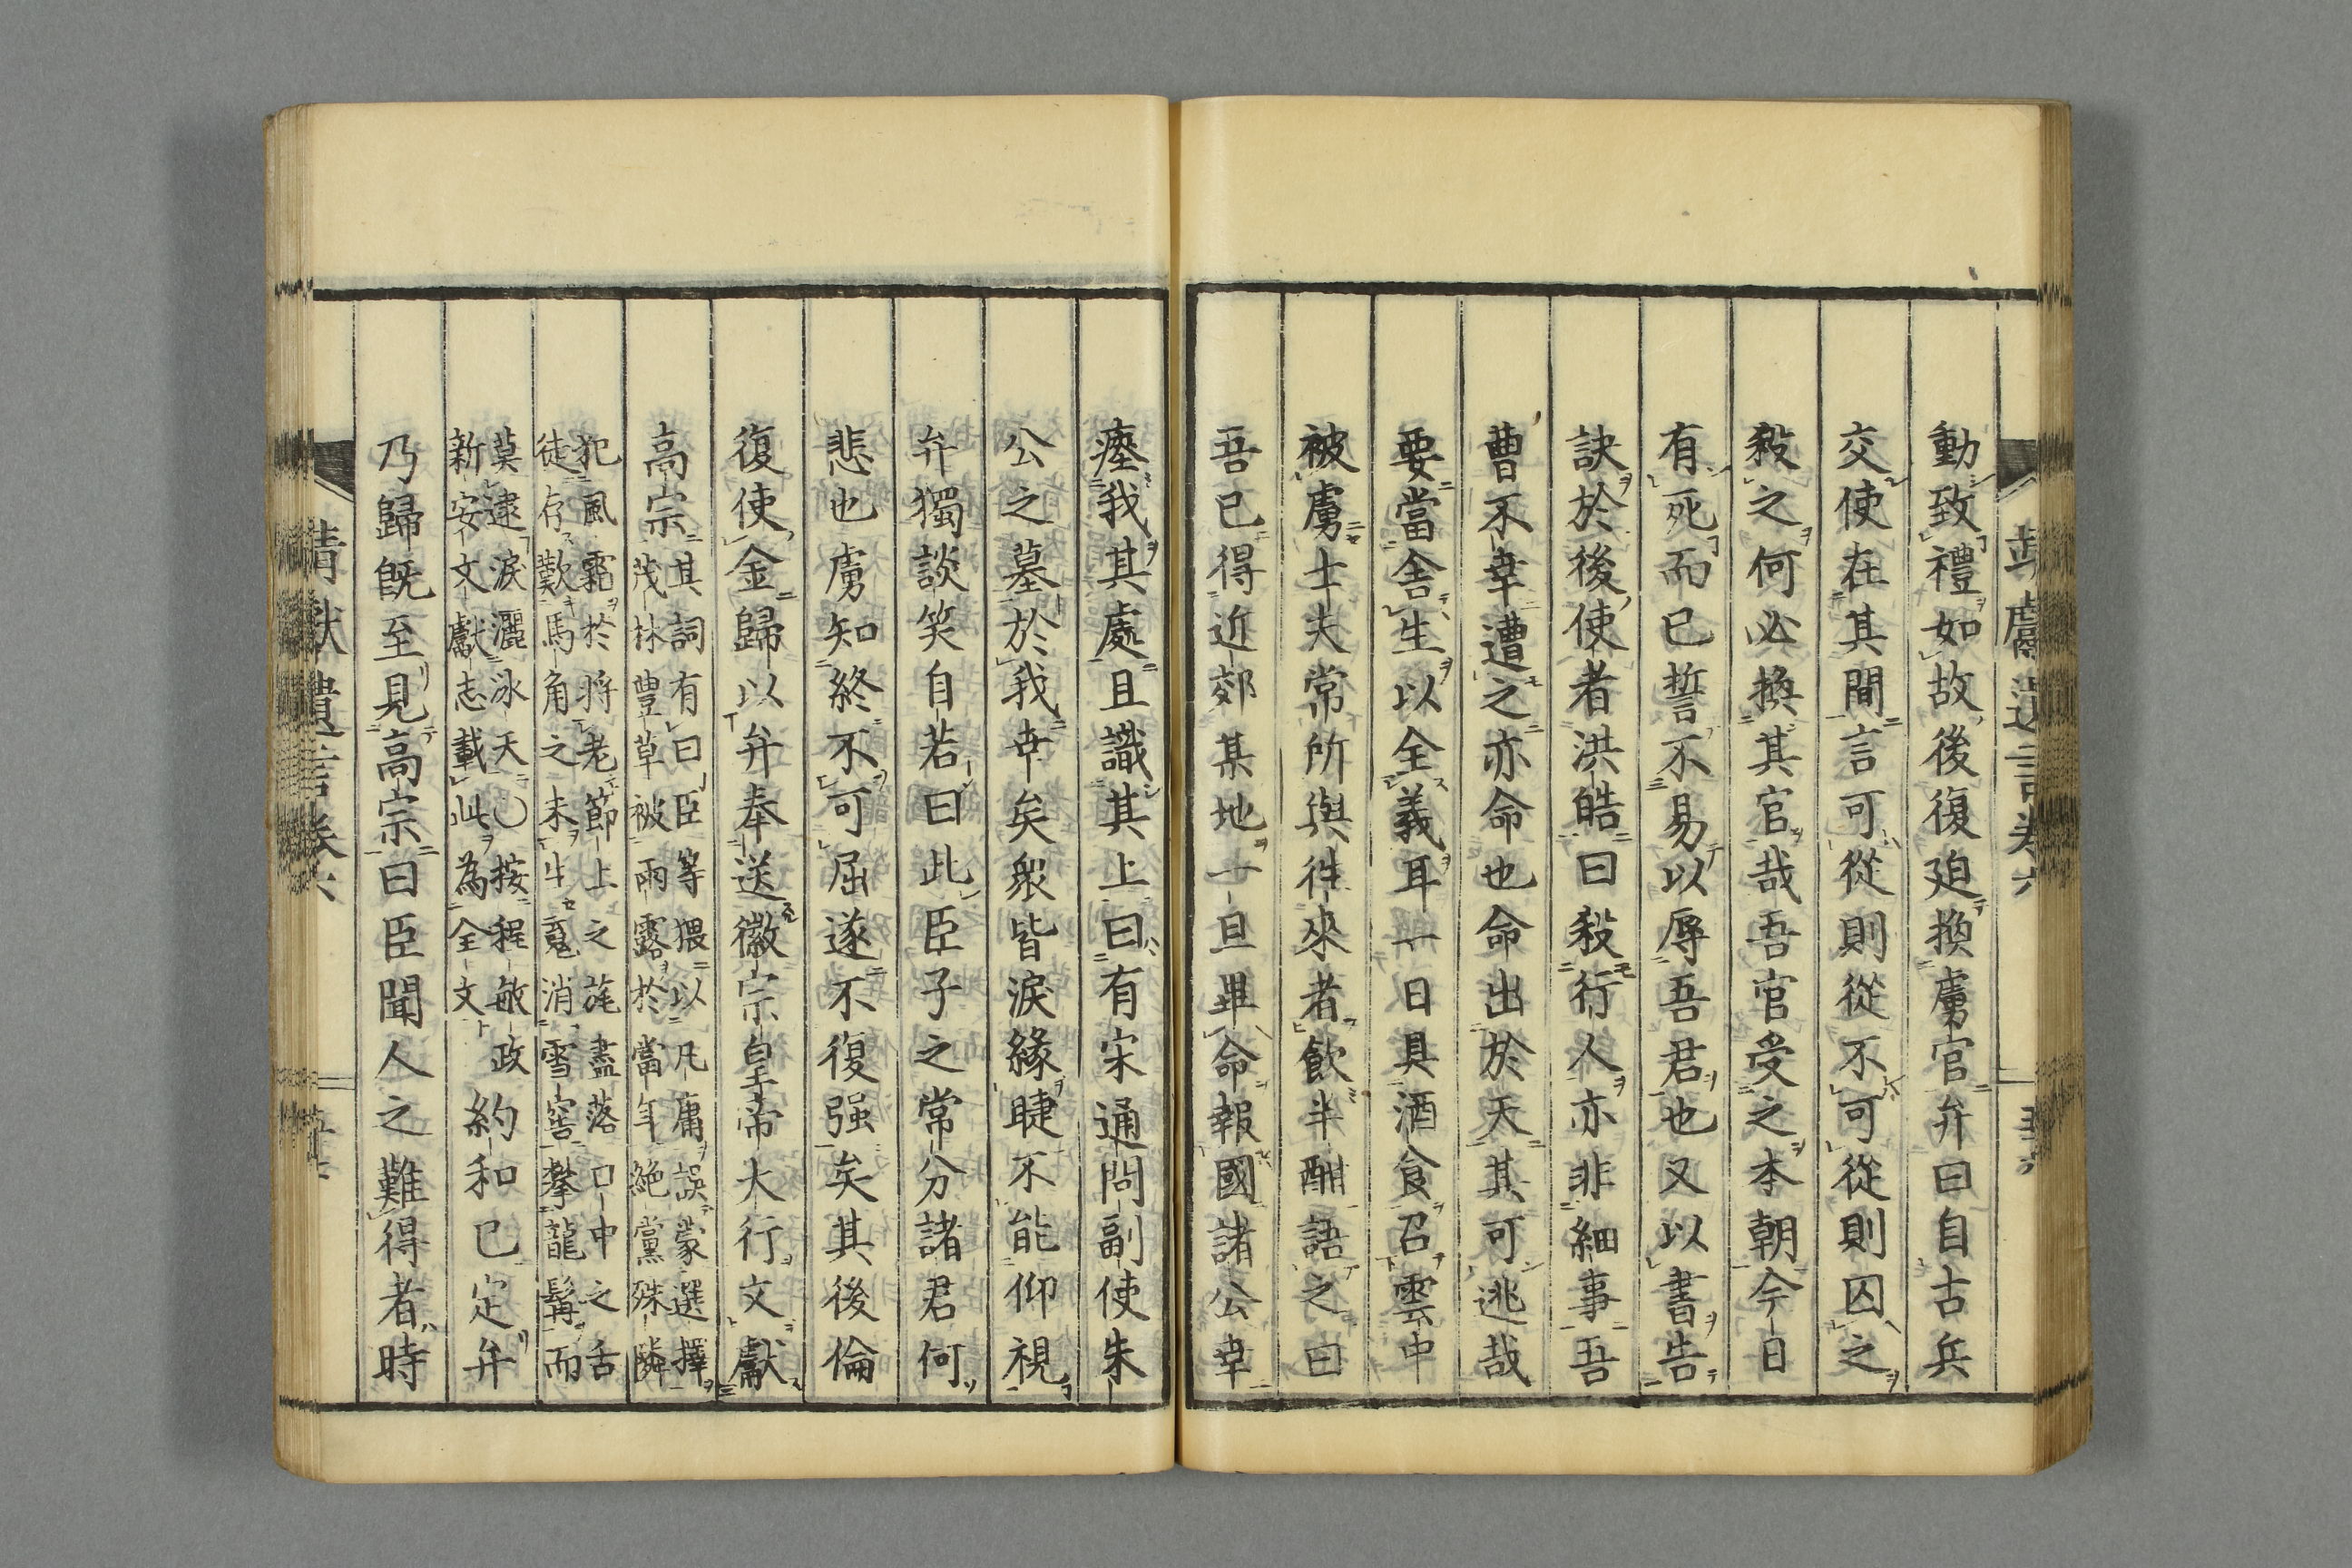 動致禮如故後復廹換虜官弁曰自古兵
交使在其間言可從則從不可從則囚之
殺之何必換其官哉吾官受之本朝今日
有死而已誓不易以辱吾君也又以書告
訣於後使者洪皓曰殺行人亦非細事吾
曹不幸遭之亦命也命出於天其可逃哉
要當舎生以全義耳一日具酒食召雲中
被虜士夫常所與往來者飲半酣語之曰
吾已得近郊某地一旦畢命報國諸公幸
瘞我其處且識其上曰有宋通問副使朱
公之墓於我幸矣衆皆淚緣睫不能仰視
弁獨談笑自若曰此臣子之常分諸君何
悲也虜知終不可屈遂不復强矣其後倫
復使金歸以弁奉送徽宗皇帝大行文獻
高宗
其詞有曰臣等猥以凡庸誤蒙選擇
茂林豊草被雨露於當年絶黨殊隣
犯風霜於將老節上之旄盡落口中之舌
徒存歎馬角之未生䰟消雪窖攀龍髯而
莫逮淚灑氷天〇按程敏政
新安文獻志載此為全文
約和已定弁
乃歸旣至見高宗曰臣聞人之難得者時